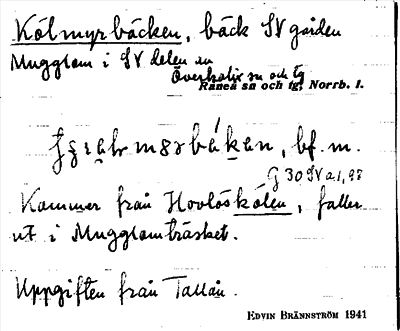 Kölmyrbäcken, bäck SV gården
Mugglom i SV delen av
Överkalix sn och tg
Råneå sn och tg, Norrb. l.
bf. m.
G 30 SV a.1, 97
Kommer från Hovlös kölen, faller
ut i Mugglomträsket.
Uppgiften från Tallån.
EDVIN BRÄNNSTRÖM 1941